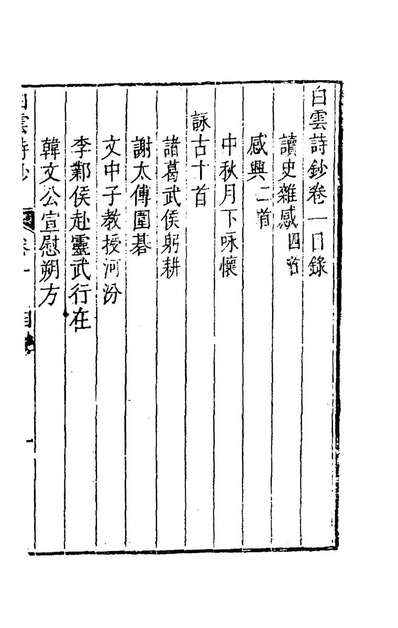 白雲詩鈔卷一目錄
讀史雜感四首
感興二首
中秋月下咏懷
詠古十首
諸葛武侯躬耕
謝太傅圍碁
文中子教授河汾
李鄴侯赴靈武行在
韓文公宣慰朔方
白雲詩鈔
卷一
目
一